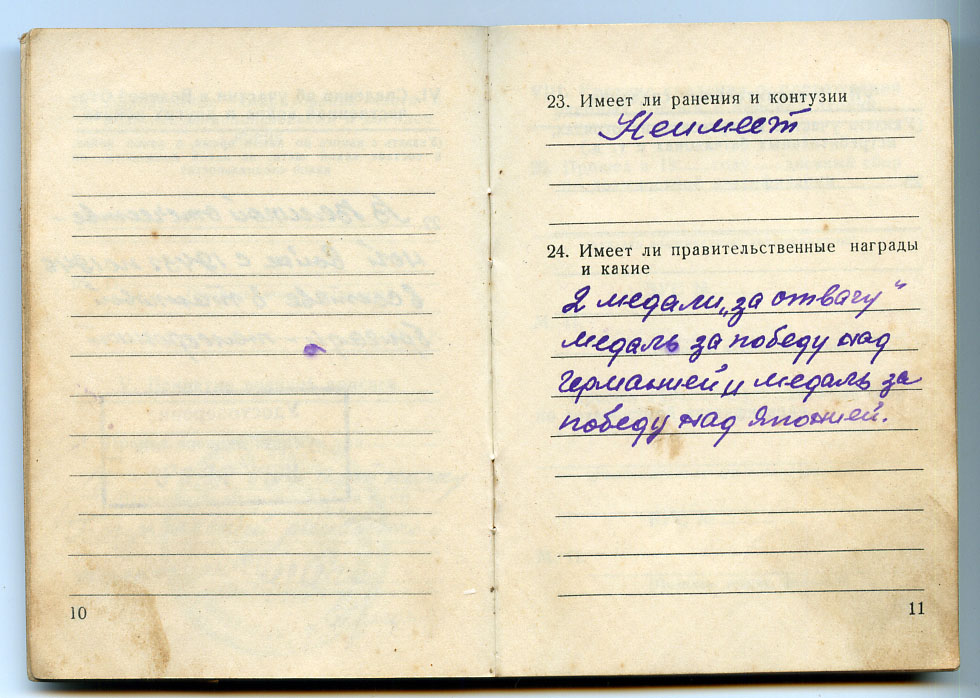 10
23. Имеет ли ранения и контузии
Неимеет
24. Имеет ли правительственные награды
и какие
2 медали „за отвагу“
медаль за победу над
Германией и медаль за
победу над Японией.
11